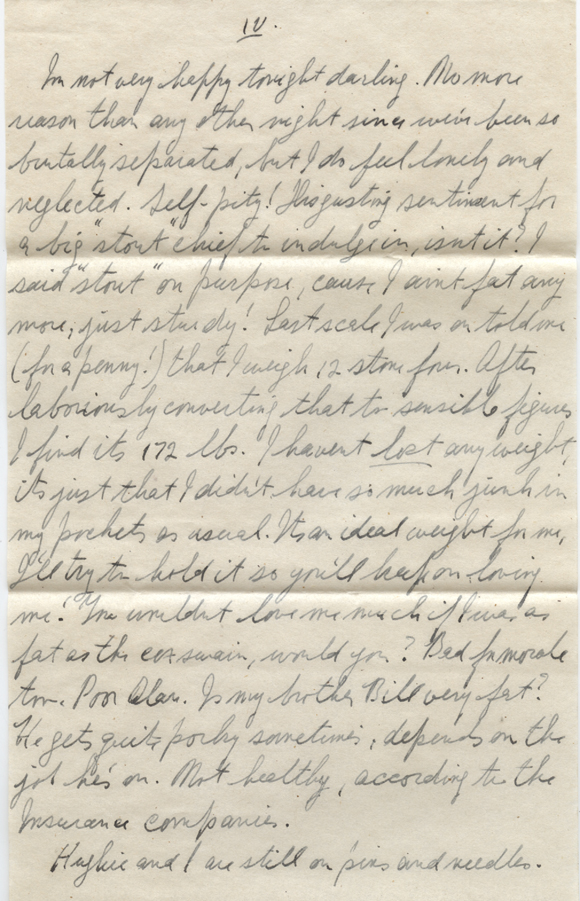 IV.
I'm not very happy tonight darling. No more
reason than any other night since we've been so
brutally separated, but I do feel lonely and
neglected. Self-pity! Disgusting sentiment for
a big "stout" chief to indulge in, isn't it? I
said "stout" on purpose, cause I ain't fat any
more, just sturdy! Last scale I was on told me
(for a penny!) that I weigh 12 stone four. After
laboriously converting that to sensible figures
I find its 172 lbs. I havent lost any weight,
its just that I didn't have so much junk in
my pockets as usual. Its an ideal weight for me,
I'll try to hold it so you'll keep on loving
me! You wouldnt love me much if I was as
fat as the cox'swain, would you? Bad for morale
too. Poor Alan. Is my brother Bill very fat?
He gets quite porky sometimes, depends on the
job he's on. Not healthy, according to the
Insurance companies.
Hughie and I are still on pins and needles.